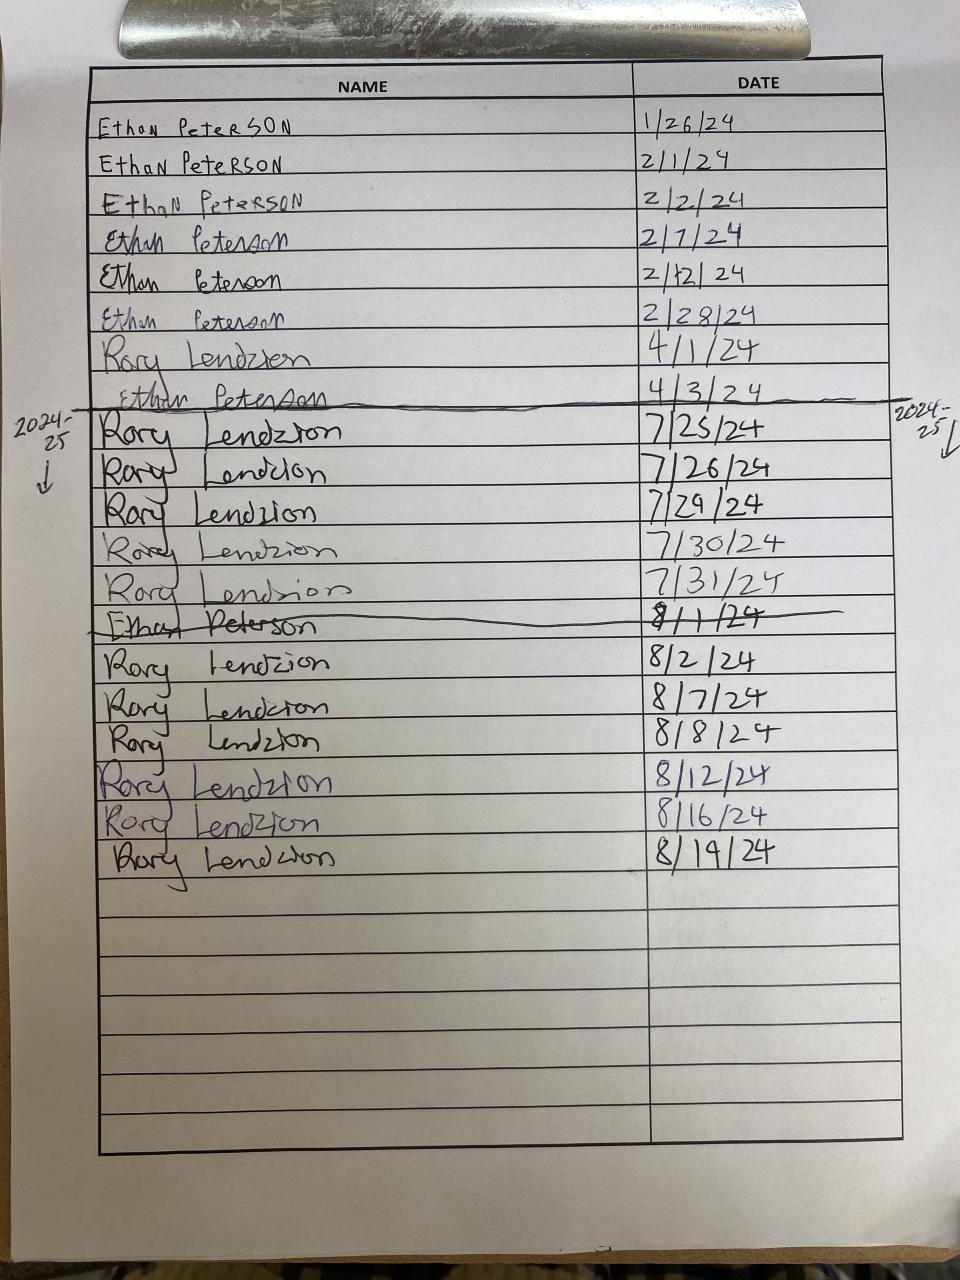 NAME DATE
Ethan Peterson 1/26/24
Ethan Peterson 2/1/24
Ethan Peterson 2/2/24
Ethan Peterson 2/7/24
Ethan Peterson 2/12/24
Ethan Peterson 2/28/24
Rory Lendzion 4/1/24
Ethan Peterson 4/3/24
2024-25 ↓ Rory Lendzion 7/25/24 2024-25 ↓
Rory Lendzion 7/26/24
Rory Lendzion 7/29/24
Rory Lendzion 7/30/24
Rory Lendzion 7/31/24
Ethan Peterson 8/1/24
Rory Lendzion 8/2/24
Rory Lendzion 8/7/24
Rory Lendzion 8/8/24
Rory Lendzion 8/12/24
Rory Lendzion 8/16/24
Rory Lendzion 8/19/24